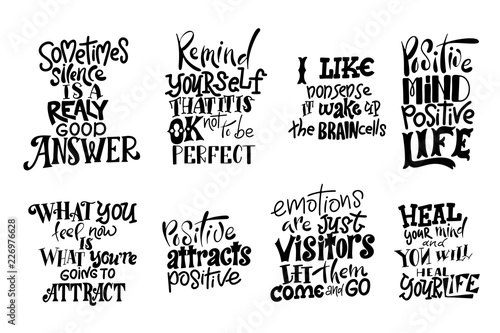 Sometimes
silence
IS A
REALY
GOOD
ANSWER
Remind
yourself
THAT IT IS
OK not to be
PERFECT
I LIKE
nonsense
IT WAKE UP
the BRAIN cells
Positive
MIND
Positive
LIFE
WHAT YOU
feel now
IS
WHAT you're
GOING TO
ATTRACT
Positive
attracts
positive
emotions
are just
VISITORS
LET them
COME and GO
HEAL
your mind
and
YOU WILL
HEAL
YOUR LIFE
Adobe Stock | #226976628